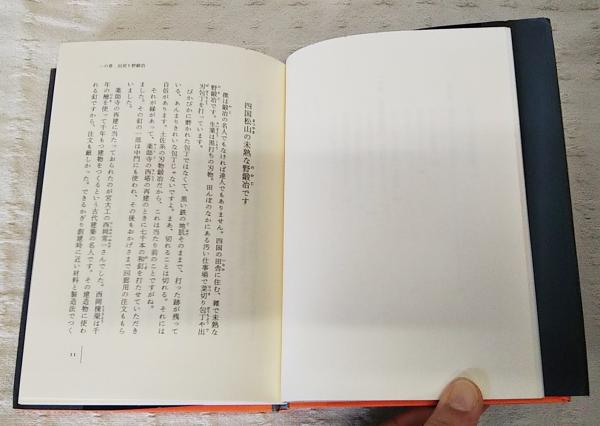 一の章 回想う野鍛冶
四国松山の未熟な野鍛冶です
僕は鍛冶の名人でもなければ達人でもありません。四国の田舎に住む、雑で未熟な
野鍛冶です。生業は黒打ちの刃物。田んぼのなかにある汚い仕事場で菜切り包丁や出
刃包丁を打っています。
ぴかぴかに磨かれた包丁ではなくて、黒い鉄の地肌そのままで、打った跡が残って
いる、あんまりきれいな包丁じゃないですよ。まあ、切れることは切れる。それには
自信があります。土佐系の刃物鍛冶だから、これは当たり前のことですがね。
それが縁があって、薬師寺の西塔の再建のときに七千本の和釘を打たせていただき
ました。その釘の一部は中門にも使われ、その後もおかげさまで回廊用の注文ももら
いました。
薬師寺の再建に当たっておられたのが宮大工の西岡常一さんでした。西岡棟梁は千
年の檜を使って千年もつ建物をつくるという古代建築の名人です。その建造物に使わ
れる釘ですから、注文も厳しかった。できるかぎり創建時に近い材料と製造法でつく
11